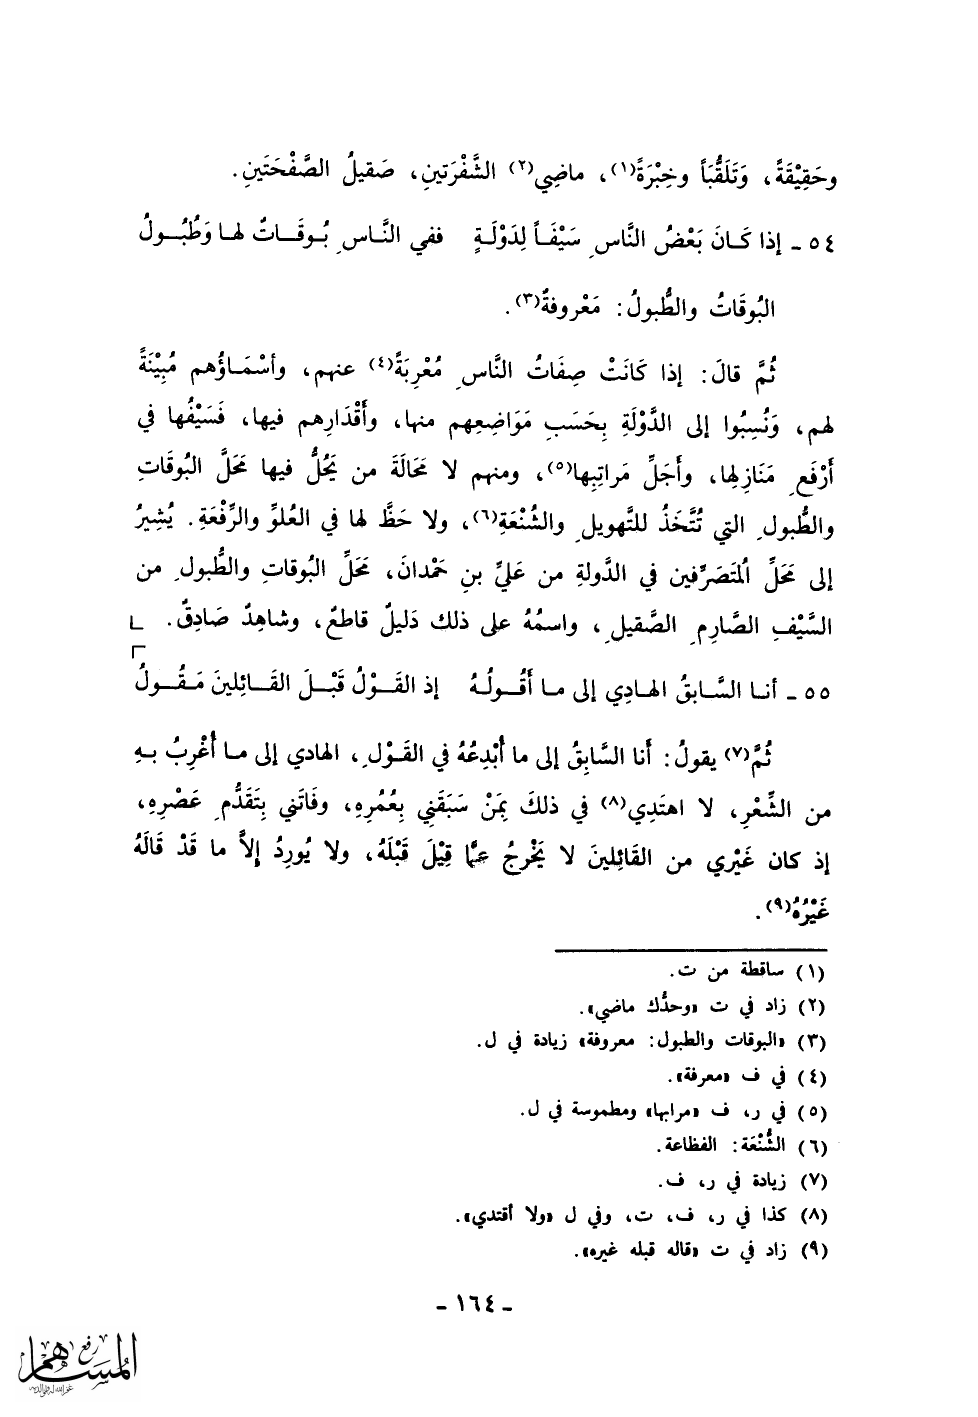 وحَقِيْقَةً، وَتَلَقُّبَاً وخِبْرَةً(١)، ماضِي(٢) الشَّفْرَتينِ، صَقيلُ الصَّفْحَتَينِ.
٥٤ ـ إذا كَـانَ بَعْضُ النَّاسِ سَيْفَـاً لِدَوْلَـةٍ ففي النَّـاسِ بُـوقَـاتٌ لهـا وَطُبُـولُ
البُوقَاتُ والطُّبولُ: مَعْروفةٌ(٣).
ثُمَّ قالَ: إذا كَانَتْ صِفَاتُ النَّاسِ مُعْرِبَةً(٤) عنهم، وأسْمَـاؤُهم مُبِيْنَةً
لهم، وَنُسِبُوا إلى الدَّوْلَةِ بِحَسَبِ مَوَاضِعِهم منها، وأَقْدَارِهم فيها، فَسَيْفُها في
أَرْفَعِ مَنَازِلِها، وأَجَلِّ مَراتِبِها(٥)، ومنهم لا مَحَالَةَ من يَحُلُّ فيها مَحَلَّ البُوقَاتِ
والطُّبولِ التي تُتَّخَذُ للتَّهويلِ والشُنْعَةِ(٦)، ولا حَظَّ لها في العُلوِّ والرِّفْعَةِ. يُشِيرُ
إلى مَحَلِّ المُتَصَرِّفين في الدَّولةِ من عَليِّ بنِ حَمْدانَ، مَحَلِّ البُوقاتِ والطُّبولِ من
السَّيْفِ الصَّارِمِ الصَّقيلِ، واسمُهُ على ذلك دَليلٌ قاطعٌ، وشاهِدٌ صَادِقٌ.
٥٥ ـ أنـا السَّـابقُ الهـادِي إلى مـا أَقُـولُـهُ إذ القَـوْلُ قَبْـلَ القَـائِلينَ مَـقُـولُ
ثُمَّ(٧) يقولُ: أَنا السَّابِقُ إلى ما أُبْدِعُهُ في القَوْلِ، الهادي إلى مـا أُغْرِبُ بـهِ
من الشِّعْرِ، لا اهتَدِي(٨) في ذلكَ بِمَنْ سَبَقَني بِعُمُرِهِ، وفَاتَني بِتَقَدُّمِ عَصْرِهِ،
إذ كان غَيْرِي من القَائِلينَ لا يَخْرجُ عمَّا قِيْلَ قَبْلَهُ، ولا يُورِدُ إلاَّ ما قَدْ قَالَهُ
غَيْرُهُ(٩).
(١) ساقطة من ت.
(٢) زاد في ت «وحدُّك ماضي».
(٣) «البوقات والطبول: معروفة» زيادة في ل.
(٤) في ف «معرفة».
(٥) في ر، ف «مرابها» ومطموسة في ل.
(٦) الشُّنْعَة: الفظاعة.
(٧) زيادة في ر، ف.
(٨) كذا في ر، ف، ت، وفي ل «ولا أقتدي».
(٩) زاد في ت «قاله قبله غيره».
ـ ١٦٤ ـ
رفع المساهم